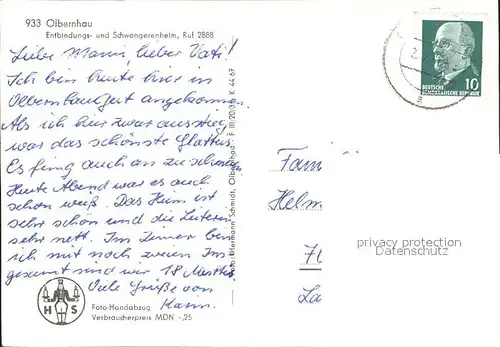 933 Olbernhau
Entbindungs- und Schwangerenheim, Ruf 2888
Liebe Mami, lieber Vati!
Ich bin heute hier in
Olbernhau gut angekommen.
Als ich hier war ausstieg
war das schönste Glatteis.
Es fing auch an zu schneien
Heute Abend war es auch
schon weiß. Das Heim ist
sehr schön und die Leiterin
sehr nett. Im Zimmer bin
ich mit noch zweien. Ins-
gesamt sind wir 18 Muttis.
Viele Grüße von
Karin.
H S
Foto-Handabzug
Verbraucherpreis MDN -,25
Foto: Hermann Schmidt, Olbernhau F III/20/3 K 44 67
DEUTSCHE
DEMOKRATISCHE REPUBLIK
10
Fam
Helm
privacy protection
Datenschutz